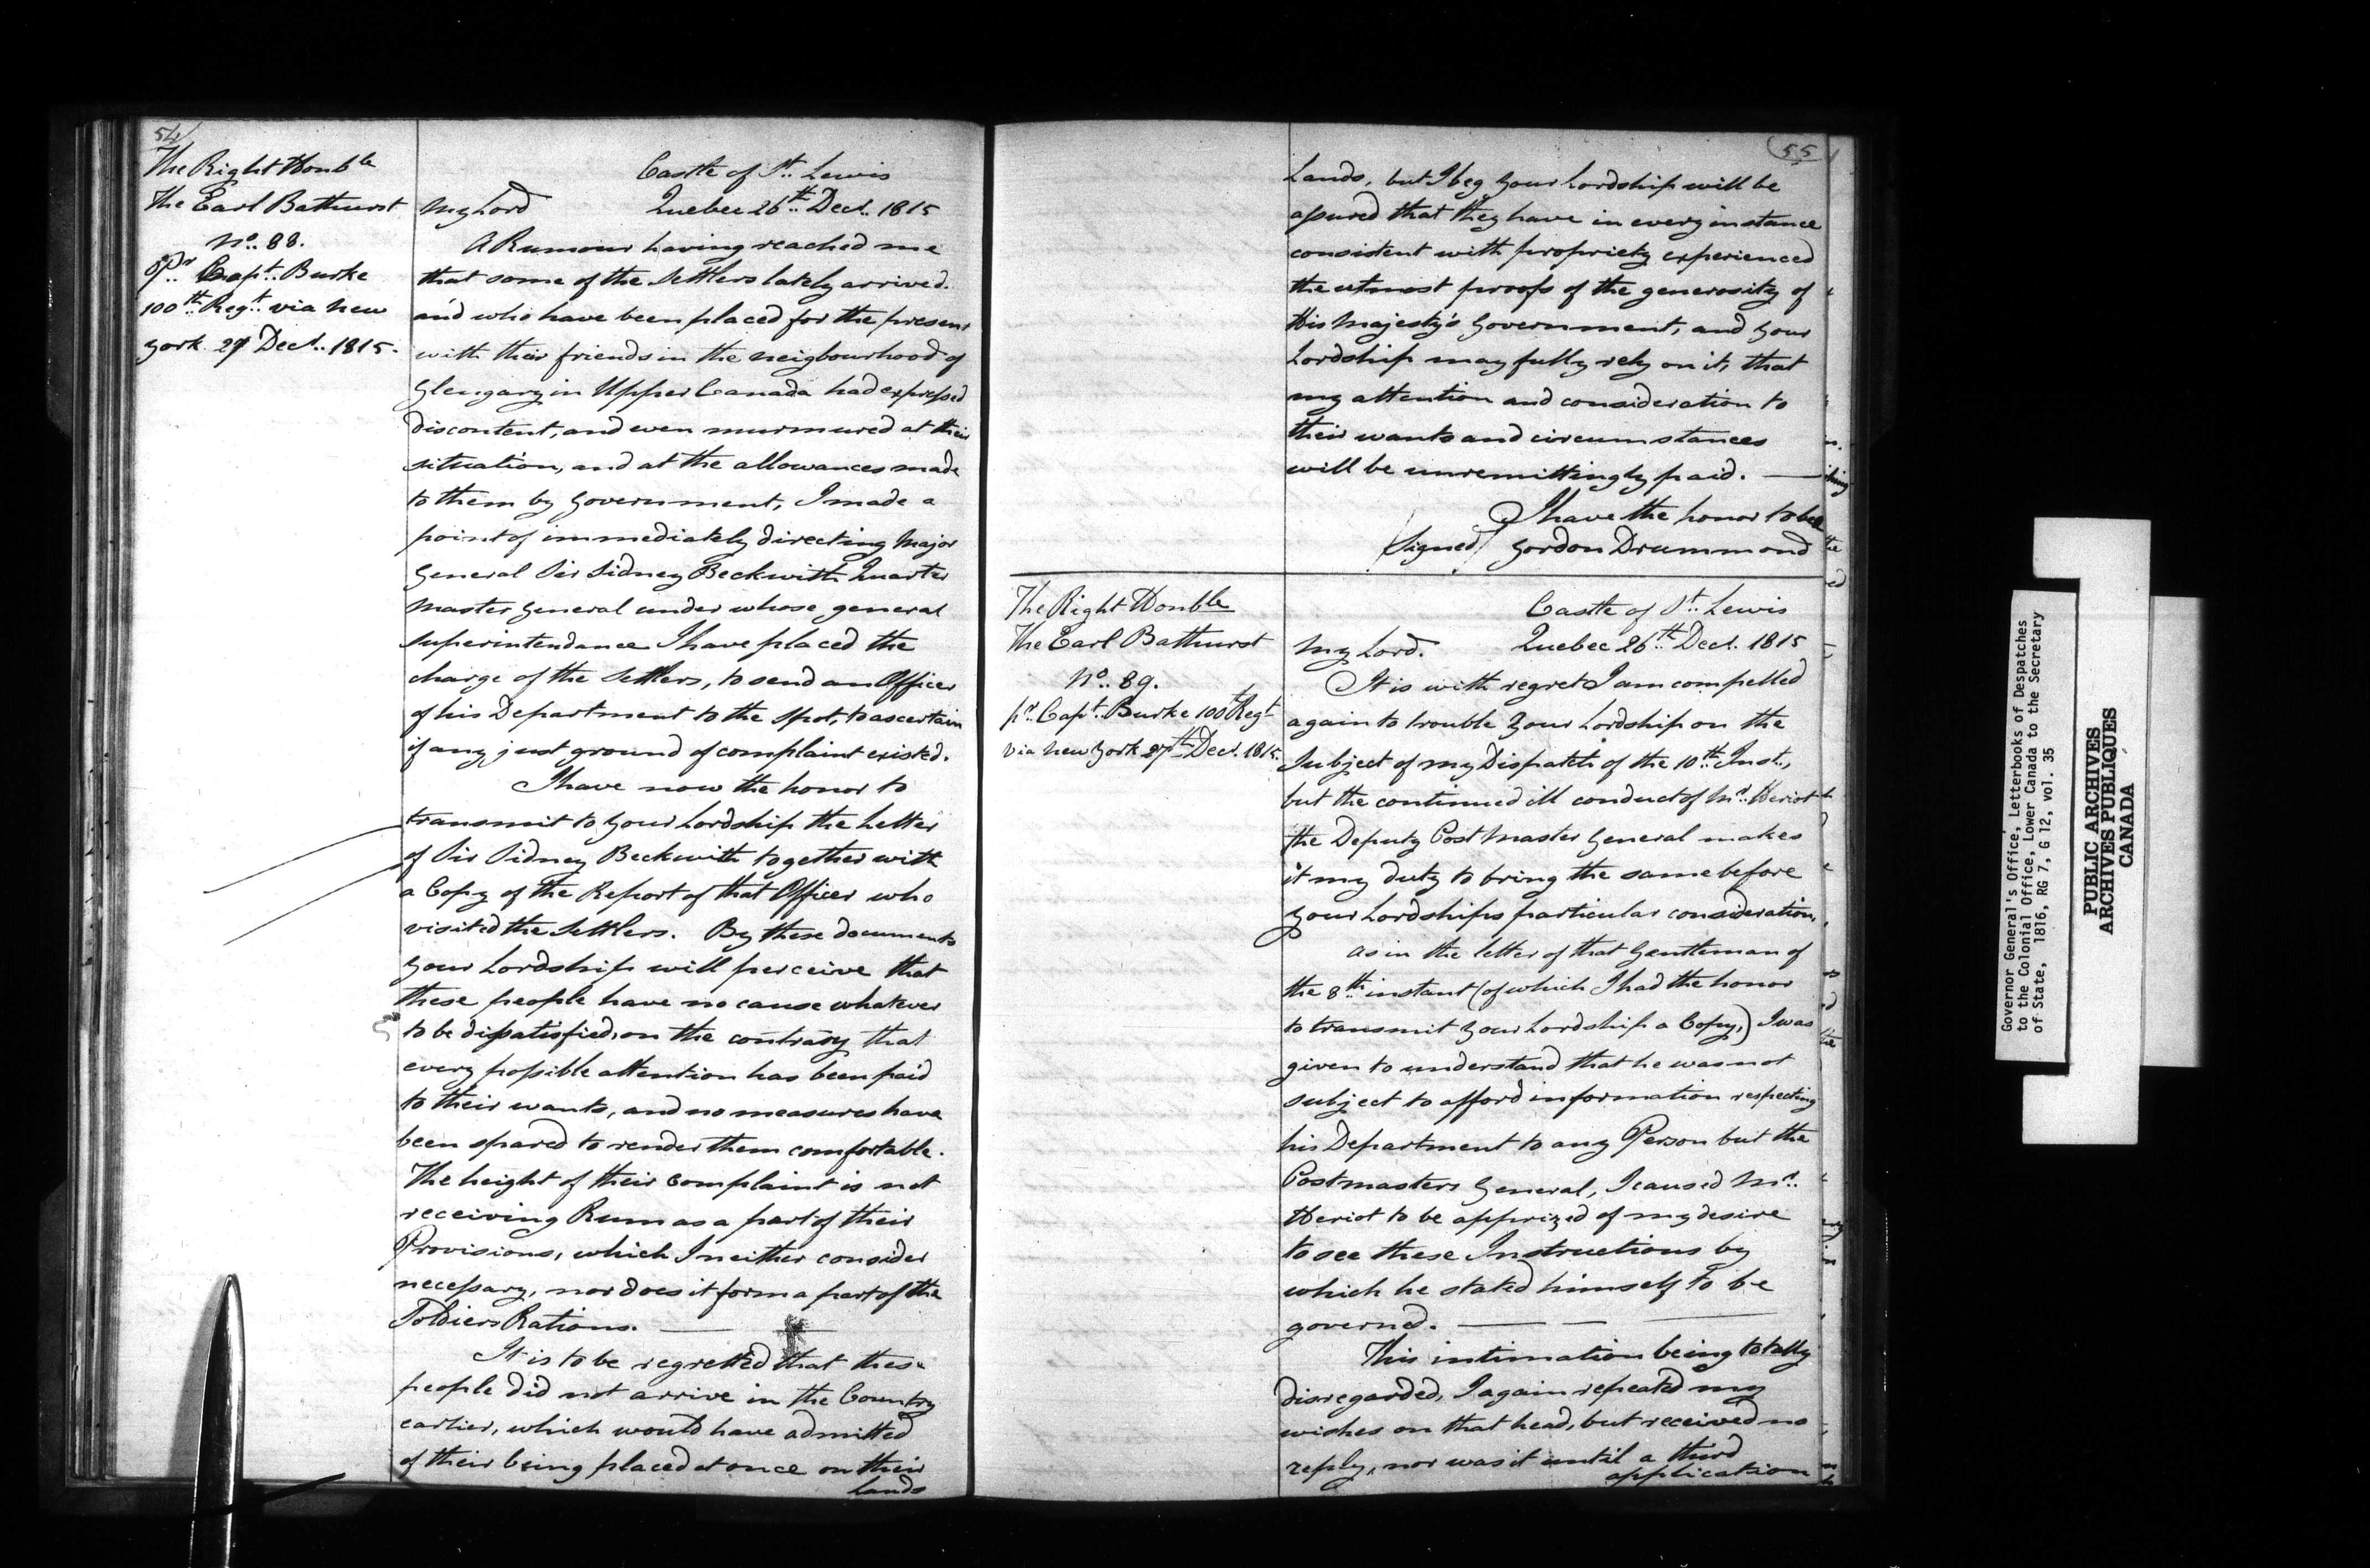 54
The Right Honble
The Earl Bathurst
No. 88.
Pr. Capt. Burke
100th Regt. via New
York 27 Decr. 1815.
Castle of St. Lewis
My Lord Quebec 26th Decr. 1815
A Rumour having reached me
that some of the Settlers lately arrived
and who have been placed for the present
with their friends in the neigbourhood of
Glengary in Upper Canada had expressed
discontent, and even murmured at their
situation, and at the allowances made
to them by Government, I made a
point of immediately directing Major
General Sir Sidney Beckwith Quarter
Master General under whose general
superintendance I have placed the
charge of the Settlers, to send an Officer
of his Department to the spot, to ascertain
if any just ground of complaint existed.
I have now the honor to
transmit to your Lordship the Letter
of Sir Sidney Beckwith together with
a Copy of the Report of that Officer who
visited the Settlers. By these documents
your Lordship will perceive that
these people have no cause whatever
to be dissatisfied, on the contrary that
every possible attention has been paid
to their wants, and no measures have
been spared to render them comfortable.
The height of their complaint is not
receiving Rum as a part of their
Provisions, which I neither consider
necessary, nor does it form a part of the
Soldiers Rations.
It is to be regretted that these
people did not arrive in the Country
earlier, which would have admitted
of their being placed at once on their
lands
55
Lands, but I beg your Lordship will be
assured that they have in every instance
consistent with propriety experienced
the utmost proofs of the generosity of
His Majesty's Government, and your
Lordship may fully rely on it, that
my attention and consideration to
their wants and circumstances
will be unremittingly paid.
I have the honor to be
(Signed) Gordon Drummond
The Right Honble
The Earl Bathurst
No. 89.
pr. Capt. Burke 100th Regt
via New York 27th Decr. 1815.
Castle of St. Lewis
My Lord. Quebec 26th Decr. 1815
It is with regret I am compelled
again to trouble your Lordship on the
Subject of my Dispatch of the 10th Inst.,
but the continued ill conduct of Mr. Heriot
the Deputy Post Master General makes
it my duty to bring the same before
your Lordships particular consideration.
As in the letter of that Gentleman of
the 8th instant (of which I had the honor
to transmit your Lordship a Copy,) I was
given to understand that he was not
subject to afford information respecting
his Department to any Person but the
Postmasters General, I caused Mr.
Heriot to be apprized of my desire
to see these Instructions by
which he stated himself to be
governed.
This intimation being totally
disregarded, I again repeated my
wishes on that head, but received no
reply, nor was it until a third
application
Governor General's Office, Letterbooks of Despatches
to the Colonial Office, Lower Canada to the Secretary
of State, 1816, RG 7, G 12, vol. 35
PUBLIC ARCHIVES
ARCHIVES PUBLIQUES
CANADA